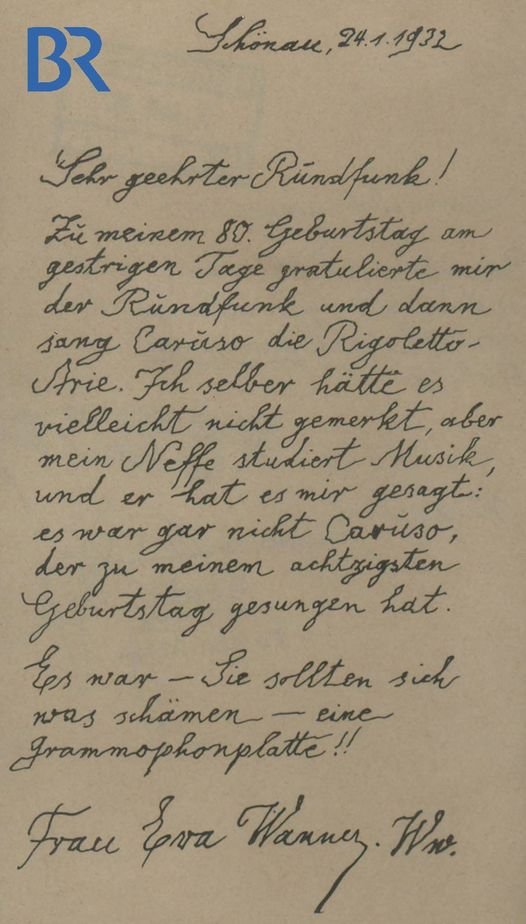 BR
Schönau, 24.1.1932
Sehr geehrter Rundfunk!
Zu meinem 80. Geburtstag am
gestrigen Tage gratulierte mir
der Rundfunk und dann
sang Caruso die Rigoletto-
Arie. Ich selber hätte es
vielleicht nicht gemerkt, aber
mein Neffe studiert Musik,
und er hat es mir gesagt:
es war gar nicht Caruso,
der zu meinem achtzigsten
Geburtstag gesungen hat.
Es war – Sie sollten sich
was schämen – eine
Grammophonplatte!!
Frau Eva Wanner. Ww.